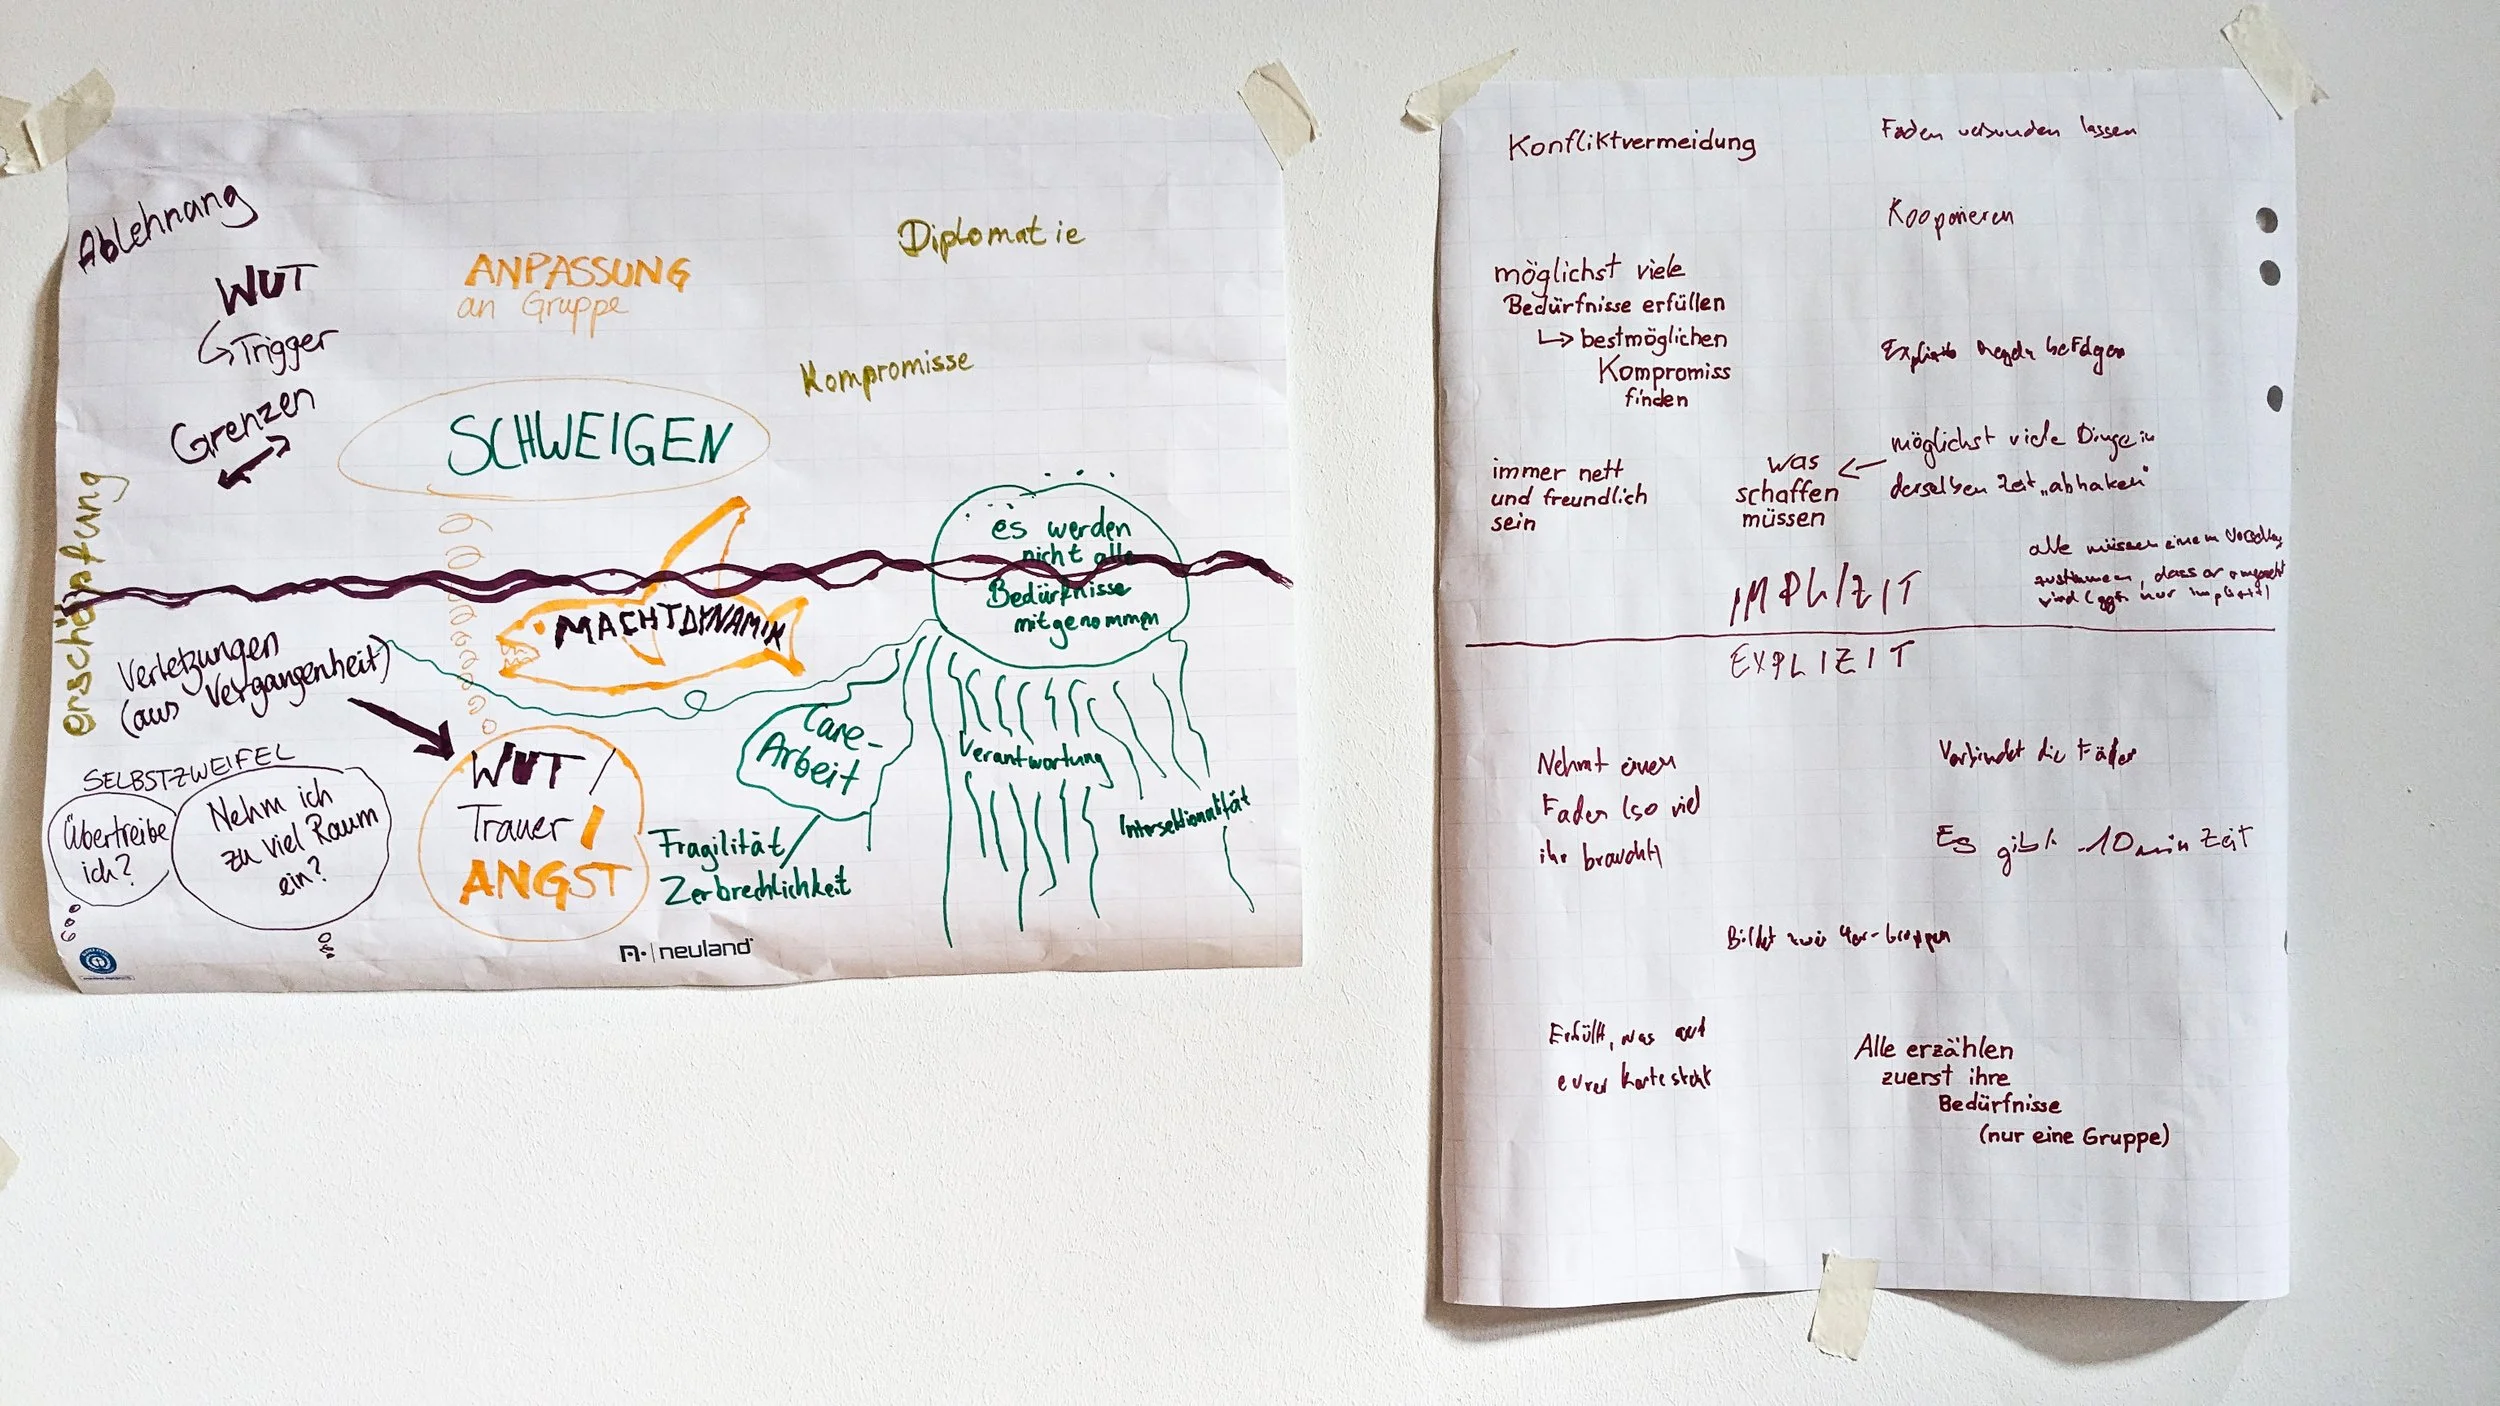 Ablehnung
WUT
Trigger
Grenzen
erschöpfung
ANPASSUNG
an Gruppe
Diplomatie
Kompromisse
SCHWEIGEN
es werden
nicht alle
Bedürfnisse
mitgenommen
MACHTDYNAMIK
Verletzungen
(aus Vergangenheit)
SELBSTZWEIFEL
Übertreibe
ich?
Nehm ich
zu viel Raum
ein?
WUT /
Trauer /
ANGST
Care-
Arbeit
Fragilität
Zerbrechlichkeit
Verantwortung
Intersektionalität
neuland
Konfliktvermeidung
Faden verbunden lassen
Kooperieren
möglichst viele
Bedürfnisse erfüllen
bestmöglichen
Kompromiss
finden
Regeln befolgen
immer nett
und freundlich
sein
was
schaffen
müssen
möglichst viele Dinge in
derselben Zeit „abhaken“
alle müssen einem Vorschlag
zustimmen, dass er umgesetzt
wird (ggf. nur implizit)
IMPLIZIT
EXPLIZIT
Nehmt einen
Faden (so viel
ihr braucht)
Verbindet die Fäden
Es gibt 10 min Zeit
Bildet zwei 4er-Gruppen
Erfüllt, was auf
eurer Karte steht
Alle erzählen
zuerst ihre
Bedürfnisse
(nur eine Gruppe)